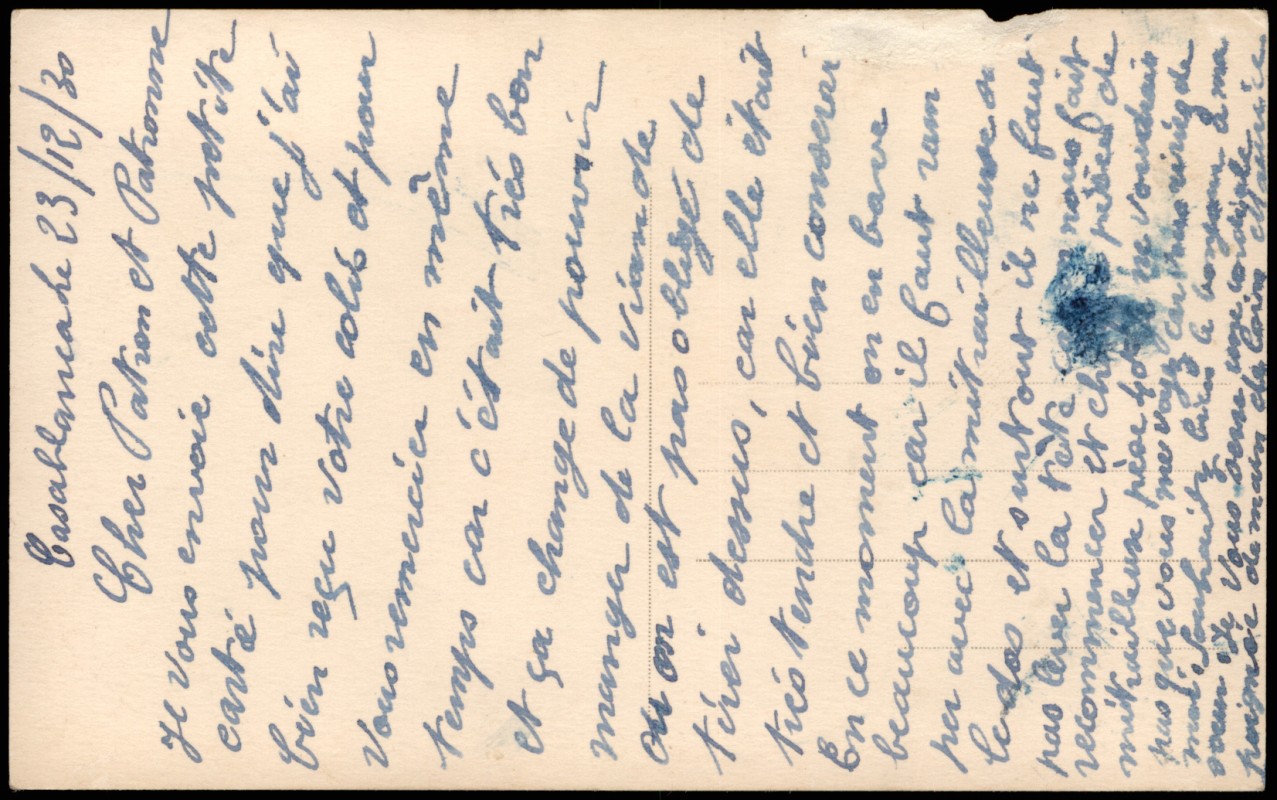 Casablanca le 23/12/30
Cher Patron et Patronne
Je vous envoie cette petite
carte pour dire que j'ai
bien reçu votre colis et pour
vous remercier en même
temps car c'était très bon
et ça change de pouvoir
manger de la viande
on est pas obligé de
tirer dessus, car elle était
très tendre et bien conserver
En ce moment on en bave
beaucoup car il faut ram
per avec la mitrailleuse on
le dos et surtout il ne faut
pas lever la tête nous fait
recommencer et ch de
mitrailleuse je voudrais
pas que vous me voyez
mais Souhaitez le bonjour à ma
soeur Je vous serre une cordiale
poignée de main de loin Maurice